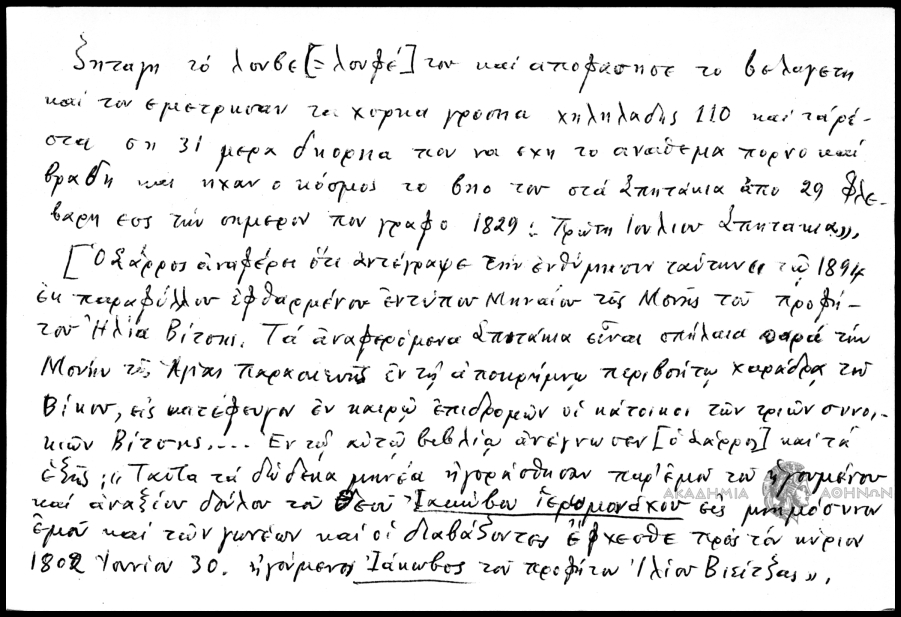 ζηταγη τό λουβε [= λουφέ] του καί αποφάσησε το βελαγετη
καί του εμετρησαν τα χορηα γροσηα χηληλαδης 110 καί τά ρέ-
στα ση 31 μερα δηορηα που να εχη το ανάθεμα πορνο καί
βραδη και ηχαν ο κόσμος το βηο του στά Σπητάκια άπο 29 Φλε-
βαρη εος την σημερον που γραφο 1829: Πρώτη Ιουλιου Σπητακια»,
[Ὁ Σάρρος ἀναφέρει ὅτι ἀντέγραψε τὴν ἐνθύμησιν ταύτην ἐν τῷ 1894
ἐκ παραφύλλου ἐφθαρμένου ἐντύπου Μηναίου τῆς Μονῆς τοῦ προφή-
του Ἠλία Βίτσης. Τά ἀναφερόμενα Σπητάκια εἶναι σπήλαια παρά τήν
Μονήν τῆς Ἁγίας Παρασκευῆς ἐν τῇ ἀποκρήμνῳ περιβοήτῳ χαράδρᾳ τοῦ
Βίκου, εἰς κατέφευγον ἐν καιρῷ ἐπιδρομῶν οἱ κάτοικοι τῶν τριῶν συνοι-
κιῶν Βίτσης.... Ἐν τῷ αὐτῷ βιβλίῳ ἀνέγνωσεν [ὁ Σάρρος] καί τά
ἑξῆς; «Ταῦτα τά δώδεκα μηνέα ἠγοράσθησαν παρ' ἐμοῦ τοῦ ἡγουμένου
καί ἀναξίου δούλου τοῦ Θεοῦ Ἰακώβου ἱερομονάχου εἰς μνημόσυνον
ἐμοῦ καί τῶν γωνέων καί οἱ διαβάζοντες ἔφχεσθε πρός τόν κύριον
1802 Ἰουνίου 30. ἡγούμενος Ἰάκωβος τοῦ προφήτου Ἰλίου Βιείτζας»,
ΑΚΑΔΗΜΙΑ ΑΘΗΝΩΝ